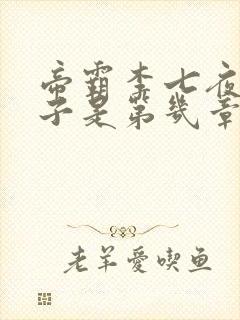 帝霸李七夜
子是第几章
老羊爱喫鱼